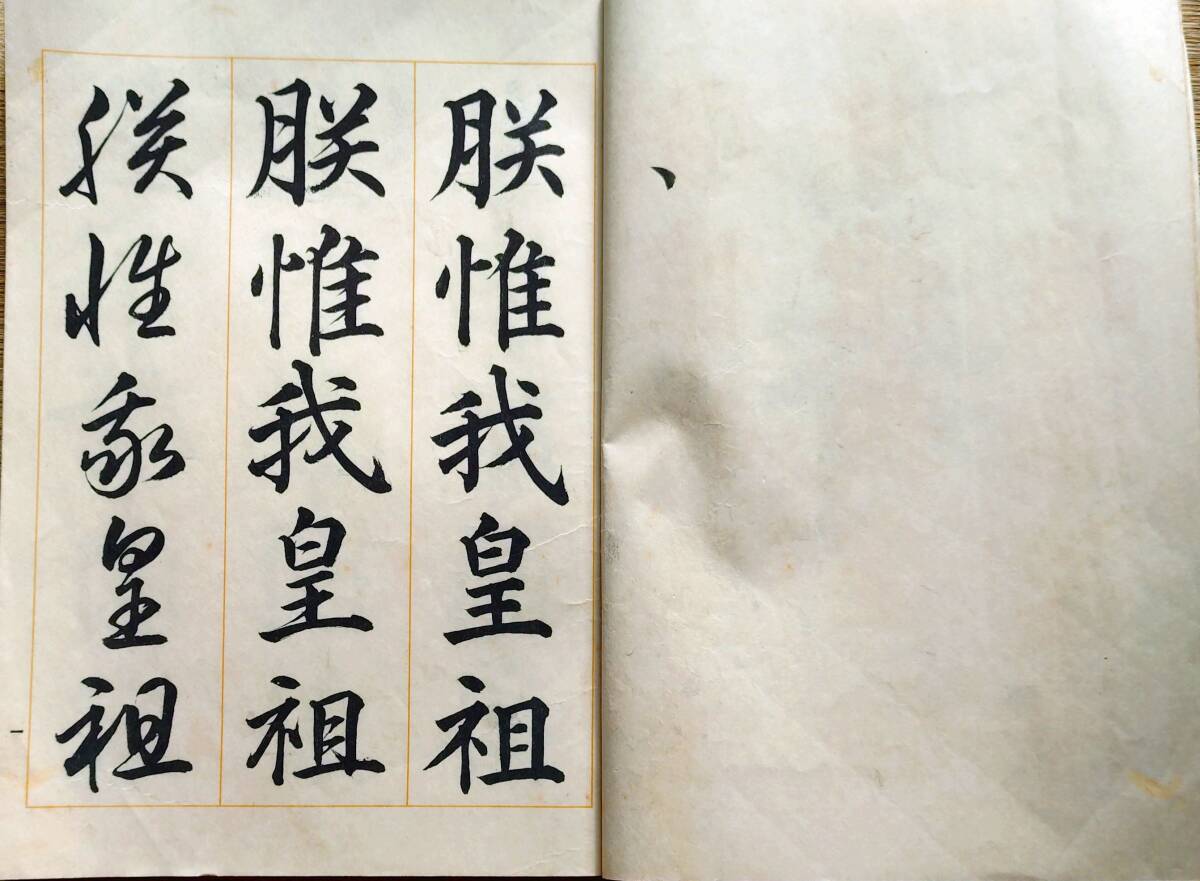 朕惟我皇祖
朕惟我皇祖
朕惟我皇祖
一